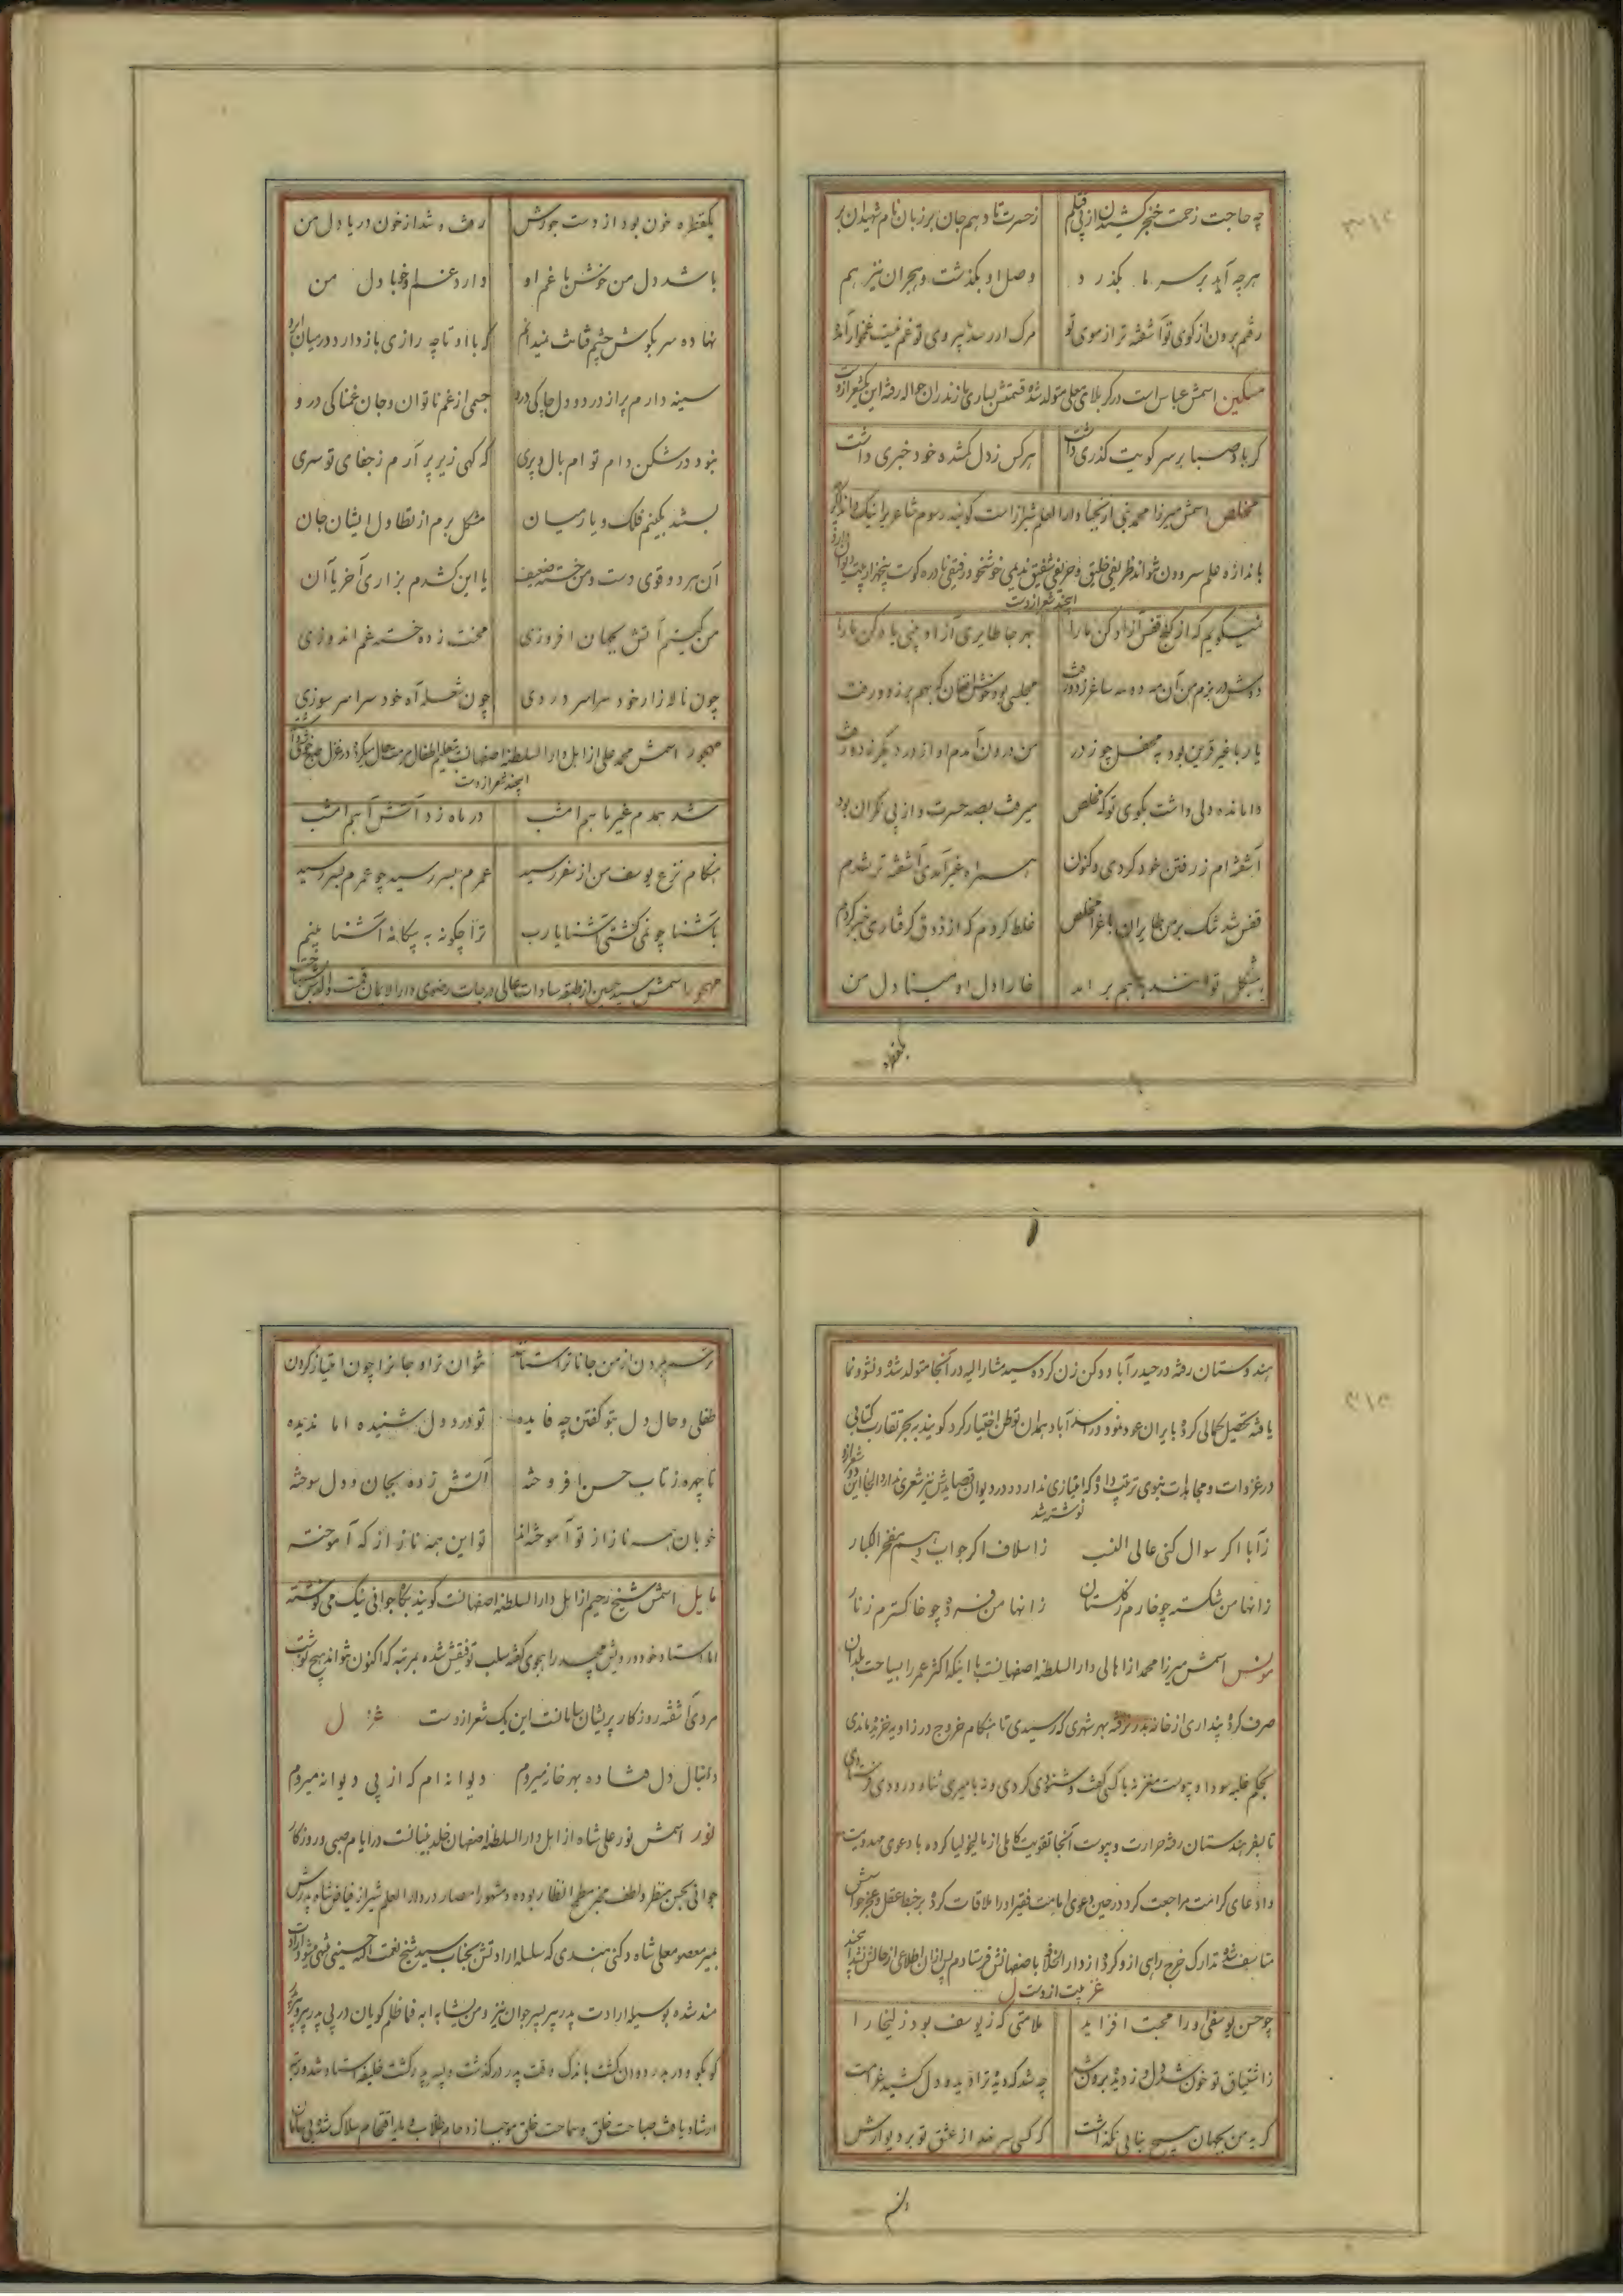 چه حاجت زحمت خنجر کشیدن از پی قتلم
ز حسرت تا دهم جان بر زبان نام شهیدان بر
هرچه آید بر سر ما بگذرد
وصل او بگذشت و هجران نیز هم
رفتم برون از کوی تو آشفته تر از موی تو
مسکین اسمش عباس است در کربلای معلی متولد شده قسمتش بساری مازندران حواله رفته این یکشعر ازوست
گر باد صبا بر سر کویت گذری داشت
هرکس ز دل گمشده خود خبری داشت
مخلص اسمش میرزا محمد نبی از نجبا دارالعلم شیراز است گویند رسوم شاعری را نیک داند اگر
باندازه علم سرودن تواند ظریفی خلیق و حریفی شفیق ندیمی خوشخو و رفیقی نادره گوست پنجهزار بیت دیوان دارد
این چند شعر ازوست
نمیگویم که از کنج قفس آزاد کن ما را
بهر جا طایری آزاد بینی یاد کن ما را
دوش در بزم من آن مه دو سه ساغر زد و رفت
مجلسی بود خوش افغان که بهم بر زد و رفت
یار با غیر قرین بود به محفل چو ز در
من درون آمدم او از در دیگر زد و رفت
وامانده دلی داشت بکوی تو که مخلص
میرفت بصد حسرت و از پی نگران بود
آشفته ام ز رفتن خود کردی و کنون
همراه غیر آمدی آشفته تر شدم
قفس شد تنگ بر من طایران باغ را مخلص
غلط کردم که از ذوق گرفتاری خبر کردم
مشکل توانند بهم برآمد
خارا دل او مینا دل من
یکقطره
یکقطره خون بود از دست جورش
رفت و شد از خون دریا دل من
باشد دل من خوش با غم او
دارد غم او خو با دل من
نهاده سر بگوش چشم فتانت نمیدانم
که با او تا چه رازی باز دارد در میان ابرو
سینه دارم پر از درد و دل چاکی درو
جسمی از غم ناتوان و جان غمناکی درو
نبود در شکن دام توام بال و پری
که گهی زیر پر آرم ز جفای تو سری
بستند بکینم فلک و یار میان
مشکل برم از تطاول ایشان جان
آن هر دو قوی دست و من خسته ضعیف
یا این کشدم بزاری آخر یا آن
من کیستم آتش بجهان افروزی
محنت زده خسته غم اندوزی
چون ناله زار خود سراسر دردی
چون شعله آه خود سراسر سوزی
مهجور اسمش محمد علی از اهل دارالسلطنه اصفهانست بتعلیم اطفال مرمت حال میکرد در غزل
این چند شعر ازوست
شد همدم غیر ماهم امشب
در ماه زد آتش آهم امشب
هنگام نزع یوسف من از سفر رسید
عمرم بسر رسید چو عمرم بسر رسید
باشنا چو نمی گشتی آشنا یا رب
ترا چگونه به بیگانه آشنا بینم
مهجور اسمش سید حسین از طبقه سادات عالی درجات رضوی دارالایمان قمست والدش
هندوستان رفته در حیدرآباد دکن زن کرده سید مشارالیه در آنجا متولد شده و نشو و نما
یافته تحصیل کمالی کرده بایران عود نمود و در اسدآباد همدان توطن اختیار کرد گویند به بحر تقارب کتابی
در غزوات و مجاهدات نبوی ترتیب داده که امتیازی ندارد و در دیوان قصایدش نیز شعری ندارد الجا این دو شعر ازو
نوشته شد
ز آبا اگر سوال کنی عالی النسب
ز اسلاف اگر جواب دهم مفخر الکبار
ز آنها من شکسته چو خارم ز گلستان
ز آنها من فسرده چو خاکسترم ز نار
مونس اسمش میرزا محمد از اهالی دارالسلطنه اصفهانست با اینکه اکثر عمر را بسیاحت بلدان
صرف کرده پنداری از خانه بدر نرفته بهر شهری که رسیدی تا هنگام خروج در زاویه خزیده ماندی
بحکم غلبه سودا و یبوست مغز نه با کسی گفت و شنودی کردی و نه با میری ثنا و درودی
تا بسفر هندستان رفته حرارت و یبوست آنجا تقویت کاملی از مالیخولیا کرده با دعوی مهدویت
و ادعای کرامت مراجعت کرد در حین دعوی امامت فقیر او را ملاقات کرده بر خبط عقل و عجز حواسش
متاسف شده تدارک خرج راهی ازو کرده از دارالخلافه باصفهانش فرستادم پس از آن اطلاعی از حالش نشد این چند
غزلیت ازوست
چو حسن یوسفی او را محبت افزاید
ملامتی که ز یوسف بود زلیخا را
ز اشتیاق تو خون شد دل و ز دیده برون شد
چه شد که دیده ترا دید و دل کشید غرامت
گریه من بجهان هیچ بنایی نگذاشت
که کسی سر نهد از عشق تو بر دیوارش
نرسم بردن از من جانا ترا ستاند
نتوان ترا و جان را چون امتیاز کردن
طفلی و حال دل بتو گفتن چه فایده
تو درد دل شنیده اما ندیده
تا چهره ز تاب حسن افروخته
آتش زده بجان و دل سوخته
خوبان همه ناز از تو آموخته اند
تو این همه ناز از که آموخته
مایل اسمش شیخ رحیم از اهل دارالسلطنه اصفهانست گویند بگاه جوانی نیک می نوشته
اما استاد خود درویش مجید را هجوی گفته سلب توفیقش شده بمرتبه که اکنون نتواند هیچ نوشت
مردی آشفته روزگار پریشان سامانست این یک شعر ازوست غزل
دنبال دل فتاده بهر خانه میروم
دیوانه ام که از پی دیوانه میروم
نور اسمش نور علی شاه از اهل دارالسلطنه اصفهان خلد بنیانست در ایام صبی و روزگار
جوانی بحسن منظر و لطف مخبر مطمح انظار بوده و مشهور امصار در دارالعلم شیراز فیاض شاه پدرش
بمیر معصوم علی شاه دکنی هندی که سلسله ارادتش بجناب سید شیخ نعمت الله حسینی منتهی میشود ارادت
مند شده بوسیله ارادت پدر پیر پسر جوان نیز و من یشابه ابه فما ظلم گویان در پی پدر پیرو پیر
کو بکو و در بدر دوان گشت باندک وقت پدر درگذشت و پسر پدر گشت خلیفه استاد شد و رتبه
ارشاد یافت صباحت خلق و سماحت خلق موجب ازدحام طلاب و مایه اقتحام سلاک شده